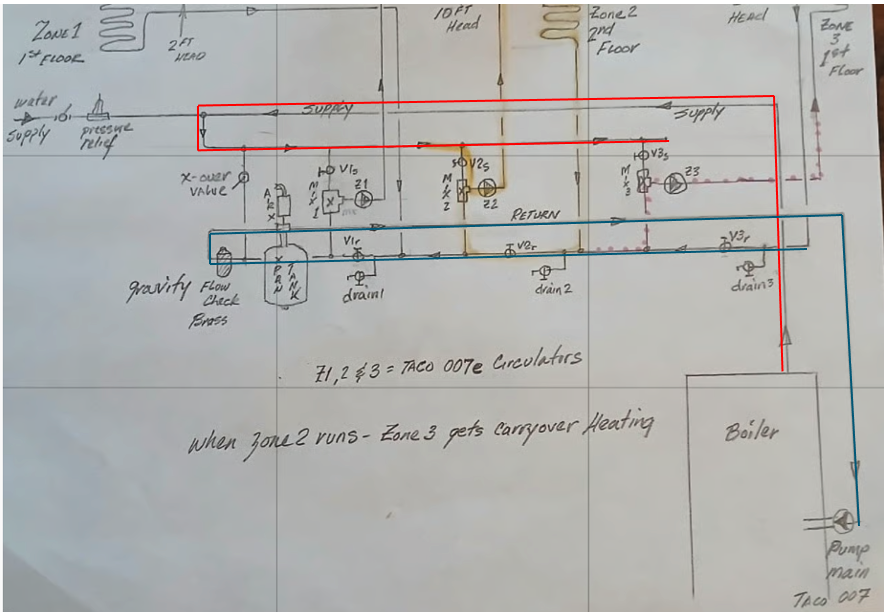 ZONE 1
1ST FLOOR
2 FT
HEAD
10 FT
Head
Zone 2
2nd
Floor
HEAD
ZONE
3
1st
Floor
water
supply
pressure
relief
SUPPLY
Supply
x-over
valve
V1s
V2s
V3s
MIX
1
MIX
2
MIX
3
Z1
Z2
Z3
RETURN
V1r
V2r
V3r
XPAN
TANK
gravity Flow
Check
Brass
drain1
drain2
drain3
Z1, 2 & 3 = TACO 007e Circulators
When Zone 2 runs - Zone 3 gets carryover Heating
Boiler
Pump
main
TACO 007